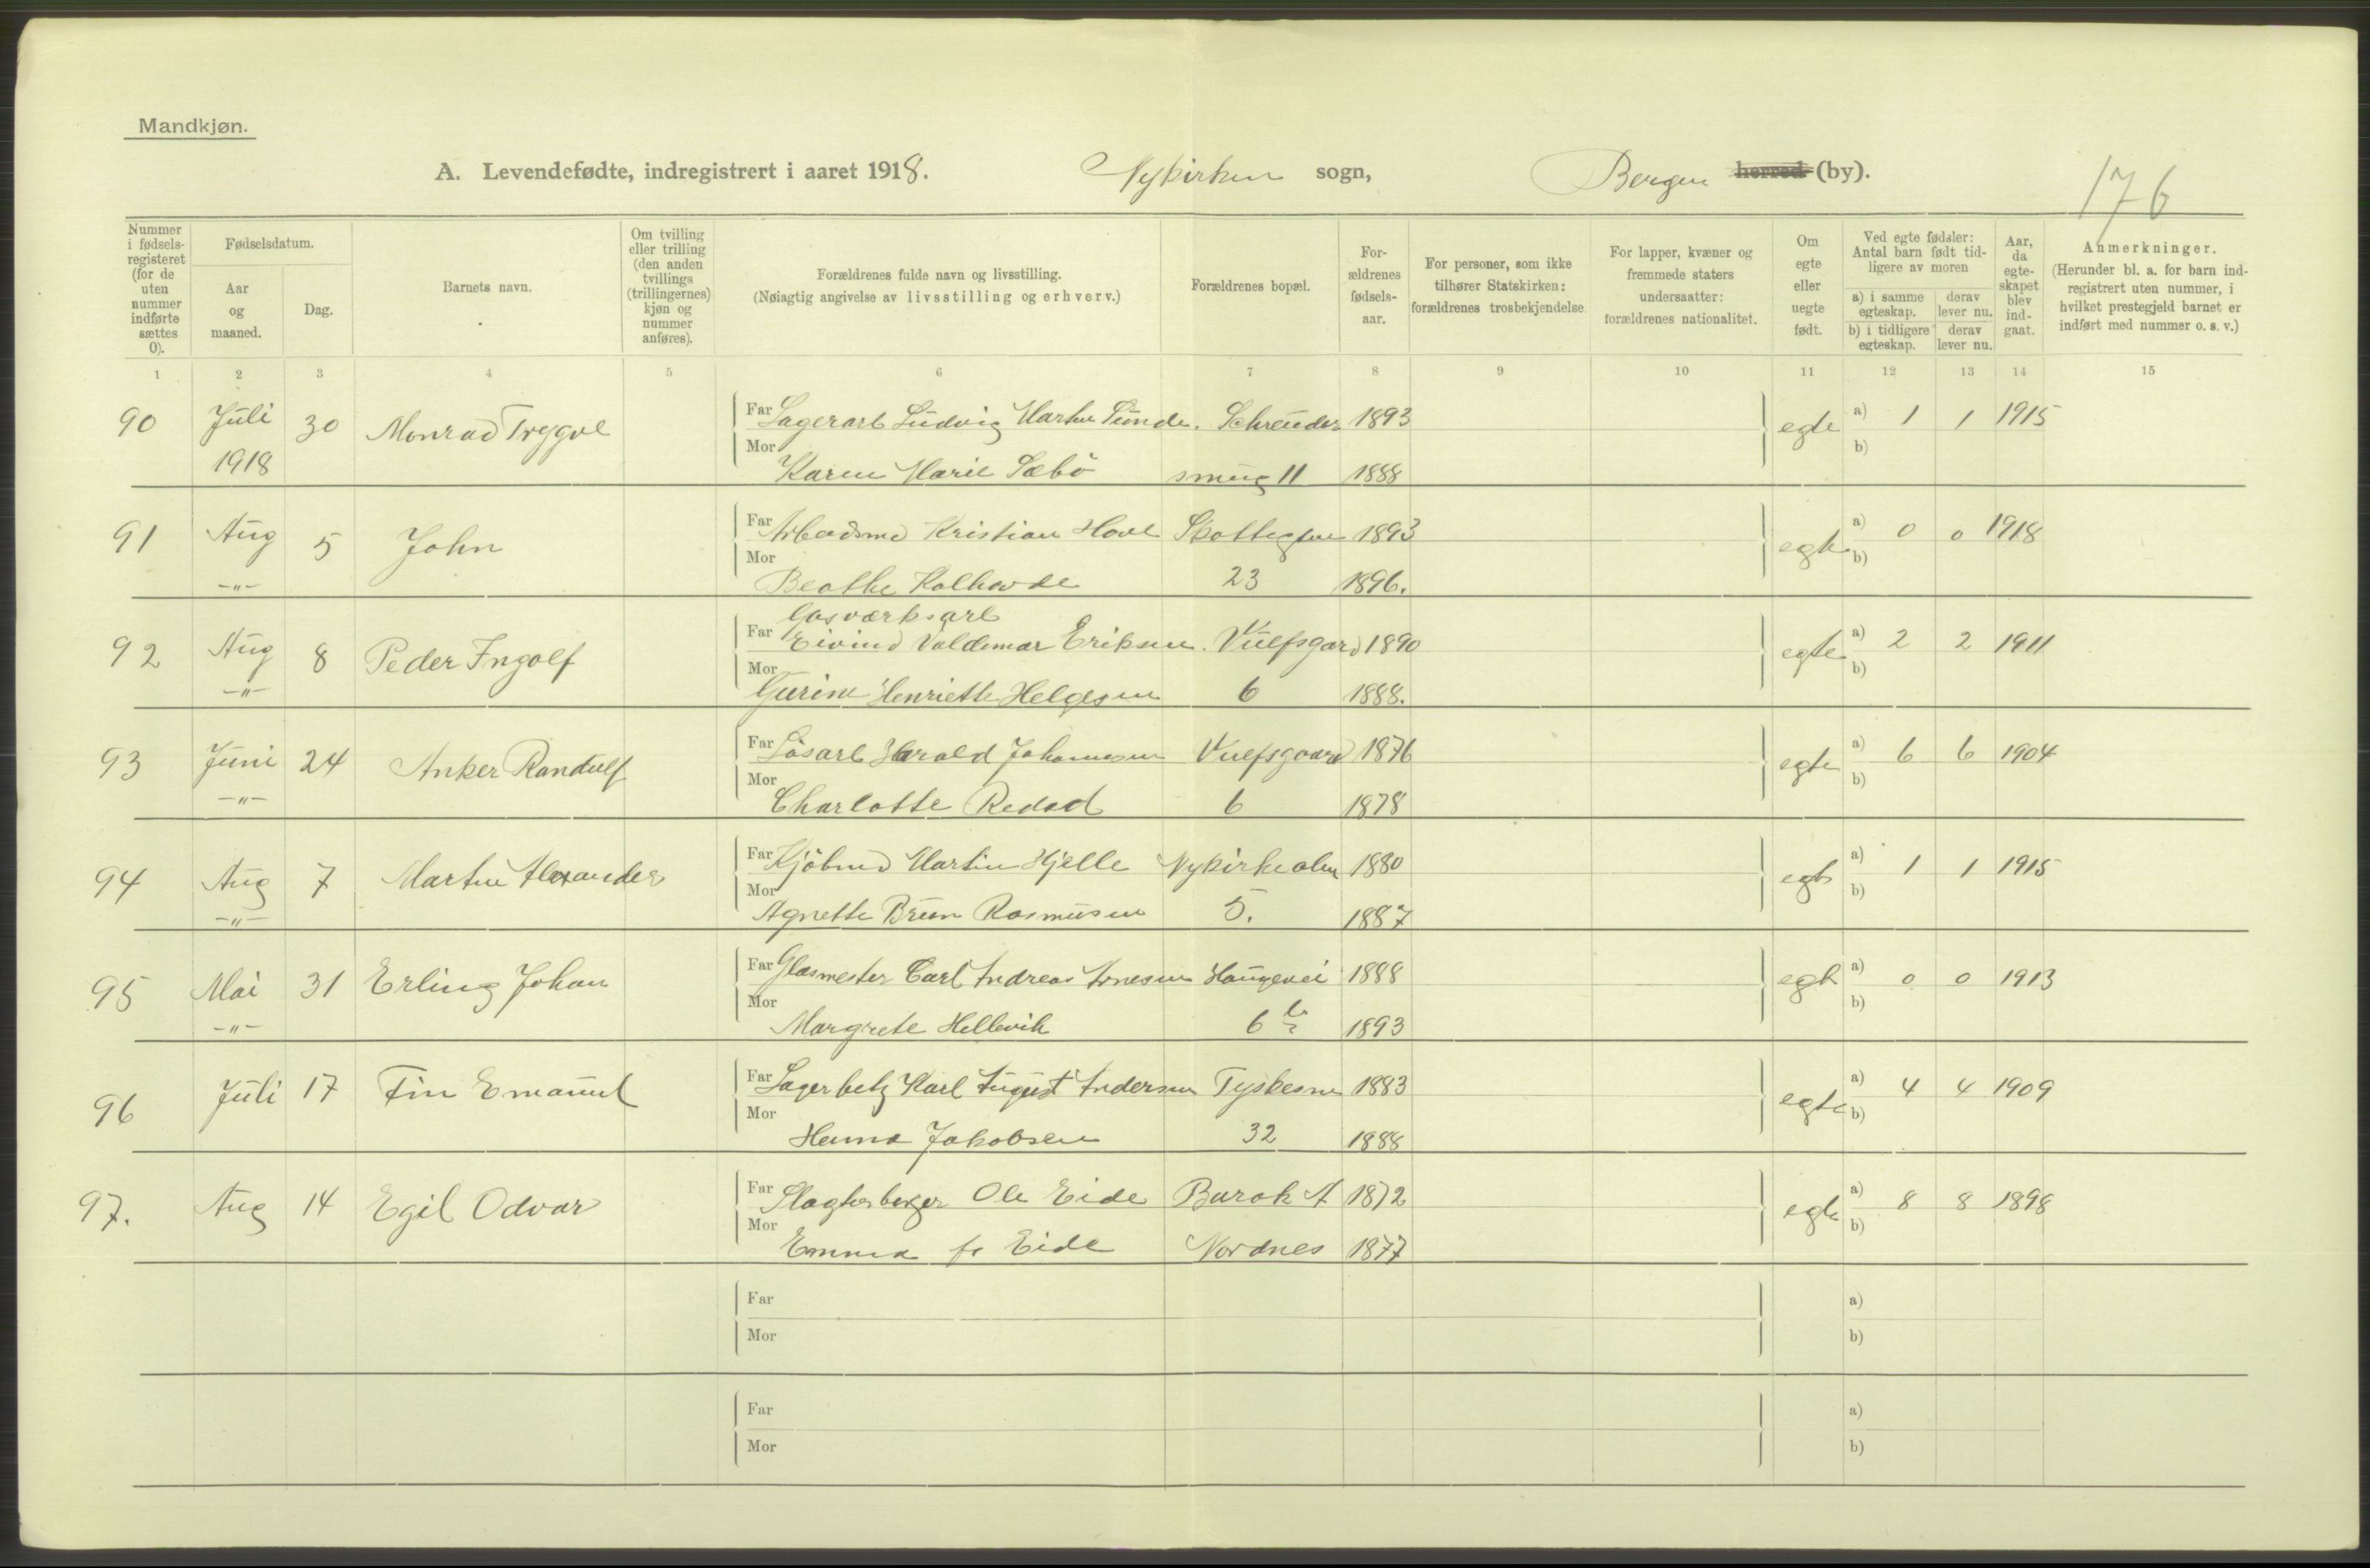 Mandkjøn.
A. Levendefødte, indregistrert i aaret 1918. Nykirken sogn, Bergen herred (by).
176
Nummer i fødsels-registeret (for de uten nummer indførte sættes 0).
Fødselsdatum.
Aar og maaned.
Dag.
Barnets navn.
Om tvilling eller trilling (den anden tvillings (trillingernes) kjøn og nummer anføres).
Forældrenes fulde navn og livsstilling.
(Nøiagtig angivelse av livsstilling og erhverv.)
Forældrenes bopæl.
For-ældrenes fødsels-aar.
For personer, som ikke tilhører Statskirken: forældrenes trosbekjendelse
For lapper, kvæner og fremmede staters undersaatter: forældrenes nationalitet.
Om egte eller uegte født.
Ved egte fødsler: Antal barn født tid-ligere av moren
a) i samme egteskap. derav lever nu.
b) i tidligere egteskap. derav lever nu.
Aar, da egte-skapet blev ind-gaat.
Anmerkninger.
(Herunder bl. a. for barn ind-registrert uten nummer, i hvilket prestegjeld barnet er indført med nummer o. s. v.)
1 2 3 4 5 6 7 8 9 10 11 12 13 14 15
90 Juli 30 Monrad Trygve Far Lagerarb Ludvig Martin Sunde. Schreuder 1893 egte a) 1 1 1915
1918 Mor Karen Marie Sæbö smug 11 1888 b)
91 Aug 5 John Far Arbeidsmd Kristian Hove Skottegten 1893 egte a) 0 0 1918
-"- Mor Beathe Kalhovde 23 1896. b)
Gasværksarb
92 Aug 8 Peder Ingolf Far Eivind Valdemar Eriksen. Vulfsgard 1890 egte a) 2 2 1911
-"- Mor Gurine Henriette Helgesen 6 1888. b)
93 Juni 24 Anker Randulf Far Løsarb Harald Johannesen Vulfsgaard 1876 egte a) 6 6 1904
-"- Mor Charlotte 6 1878 b)
94 Aug 7 Martin Alexander Far Kjöbmd Martin Hjelle Nykirkealm 1880 egte a) 1 1 1915
-"- Mor Agnette Brun Rasmusen 5. 1887 b)
95 Mai 31 Erling Johan Far Glasmester Carl Andreas Arnesen Haugevei 1888 egte a) 0 0 1913
-"- Mor Margrete Hellevik 6 1893 b)
96 Juli 17 Fin Emanuel Far Lagerbetj Karl August Andersen Tyskesm 1883 egte a) 4 4 1909
Mor Hanna Jakobsen 32 1888 b)
97. Aug 14 Egil Odvar Far Slagterborger Ole Eide Barak A 1872 egte a) 8 8 1898
Mor Emma f. Eide Nordnes 1877 b)
Far a)
Mor b)
Far a)
Mor b)